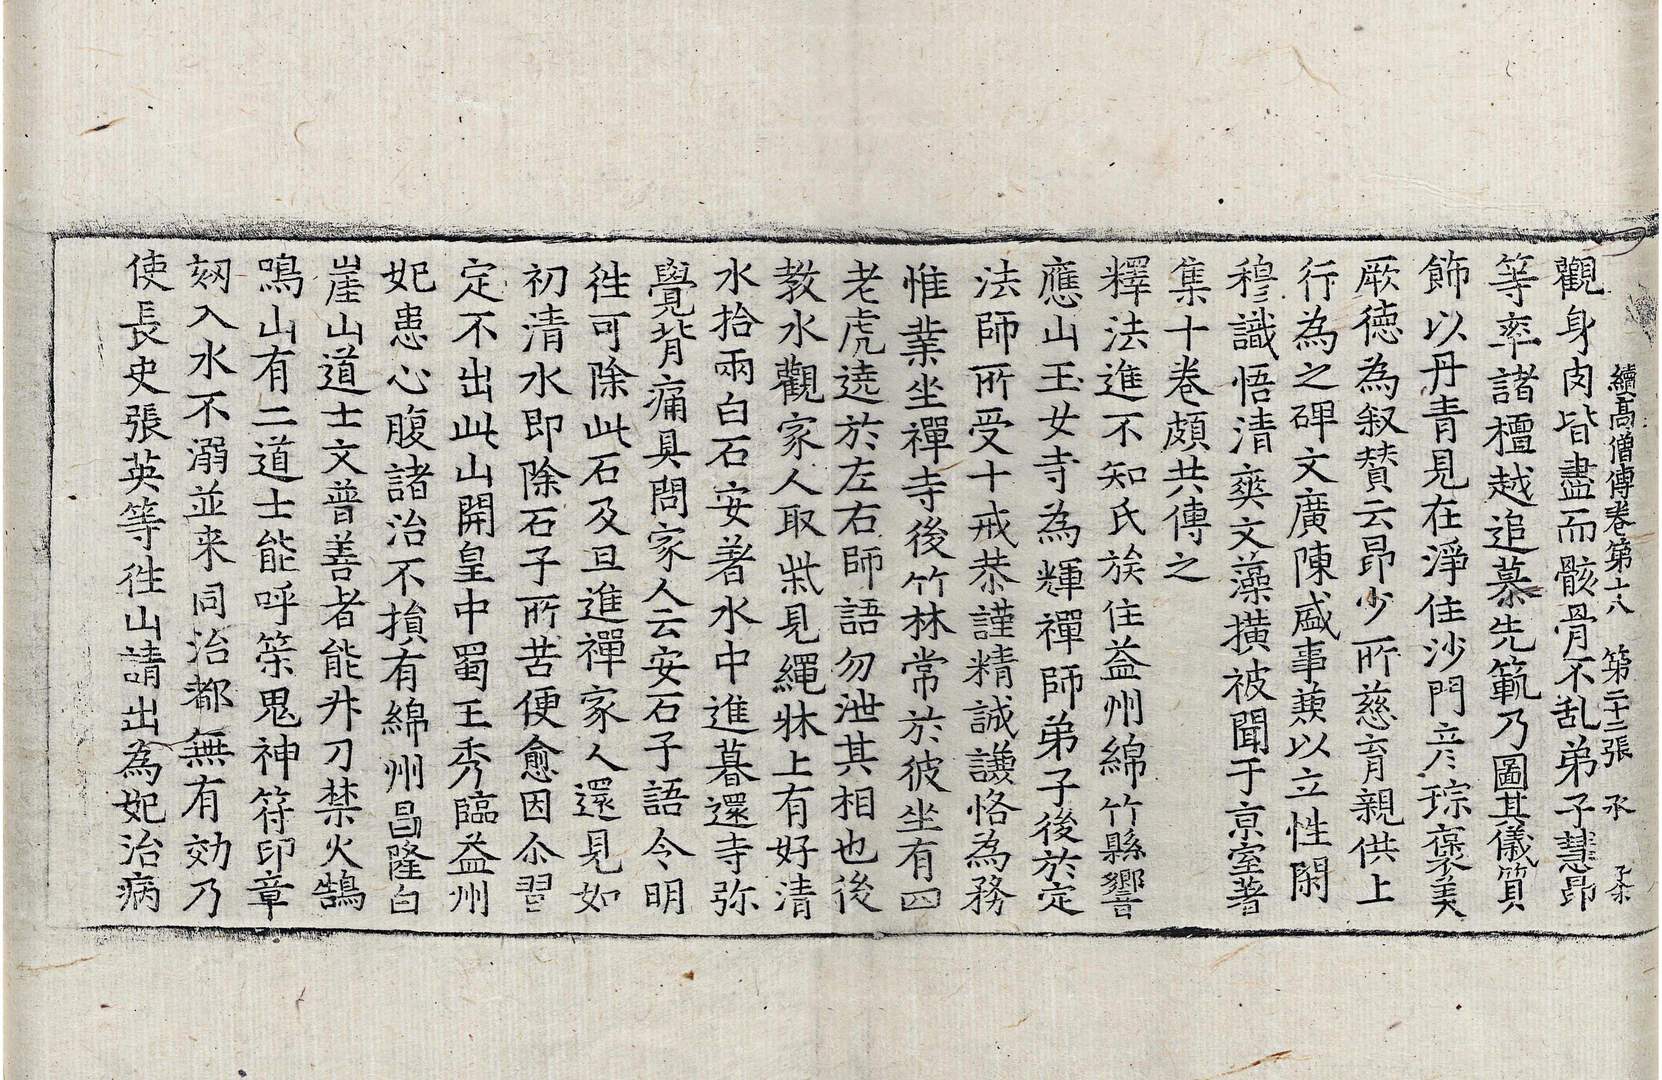 續高僧傳卷第十八 第二十二張 承
觀身肉皆盡而骸骨不乱弟子慧昂
等率諸檀越追慕先範乃圖其儀質
飾以丹青見在淨住沙門彦琮襃美
厥徳為叙賛云昂少所慈育親供上
行為之碑文廣陳盛事兼以立性閑
穆識悟清爽文藻横被聞于京室著
集十卷頗共傳之
釋法進不知氏族住益州綿竹縣響
應山玉女寺為輝禪師弟子後於定
法師所受十戒恭謹精誠謙恪為務
惟業坐禪寺後竹林常於彼坐有四
老虎遶於左右師語勿泄其相也後
教水觀家人取柴見繩牀上有好清
水拾兩白石安著水中進暮還寺弥
覺背痛具問家人云安石子語令明
徃可除此石及旦進禪家人還見如
初清水即除石子所苦便愈因尒習
定不出此山開皇中蜀王秀臨益州
妃患心腹諸治不損有綿州昌隆白
崖山道士文普善者能升刀禁火鵠
鳴山有二道士能呼策鬼神符印章
劾入水不溺並来同治都無有効乃
使長史張英等徃山請出為妃治病